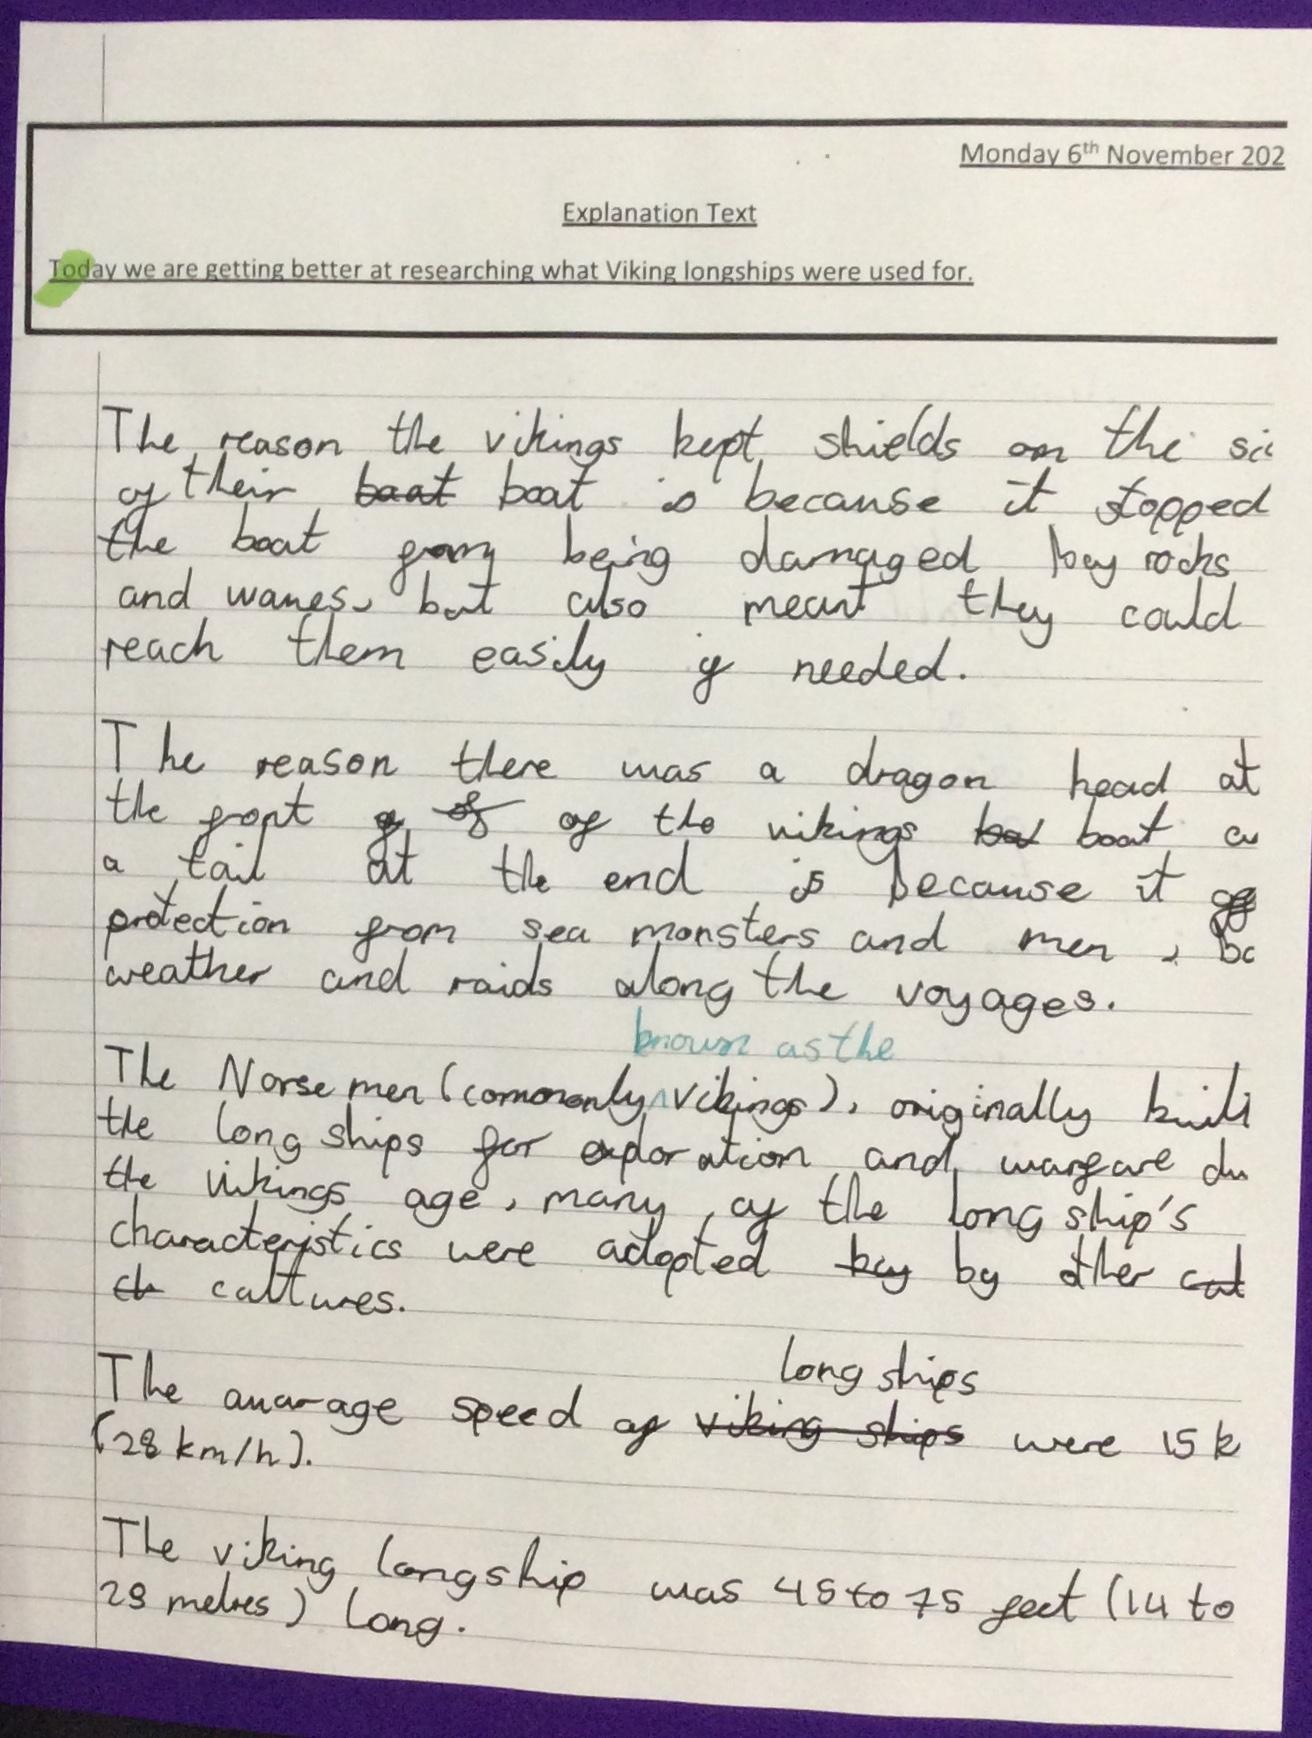 Monday 6th November 202
Explanation Text
Today we are getting better at researching what Viking longships were used for.
The reason the vikings kept shields on the
of their baat boat is because it stopped
the boat from being damaged bey rocks
and waves, but also meant they could
reach them easily if needed.
The reason there was a dragon head at
the front of of of the vikings bot boat
a tail at the end is because it
protection from sea monsters and men,
weather and raids along the voyages.
known as the
The Norse men (commonly ^vikings), originally built
the long ships for exploration and warfare du
the vikings age, many, of the long ship's
characteristics were adopted bey by other cut
ch caltures.
long ships
The avarage speed of viking ships were 15 k
(28 km/h).
The viking longship was 45 to 75 feet (14 to
23 metres) long.